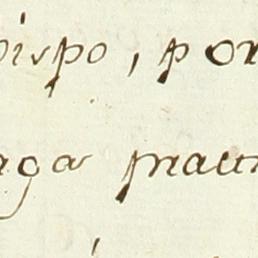 ispo, por
aga pract